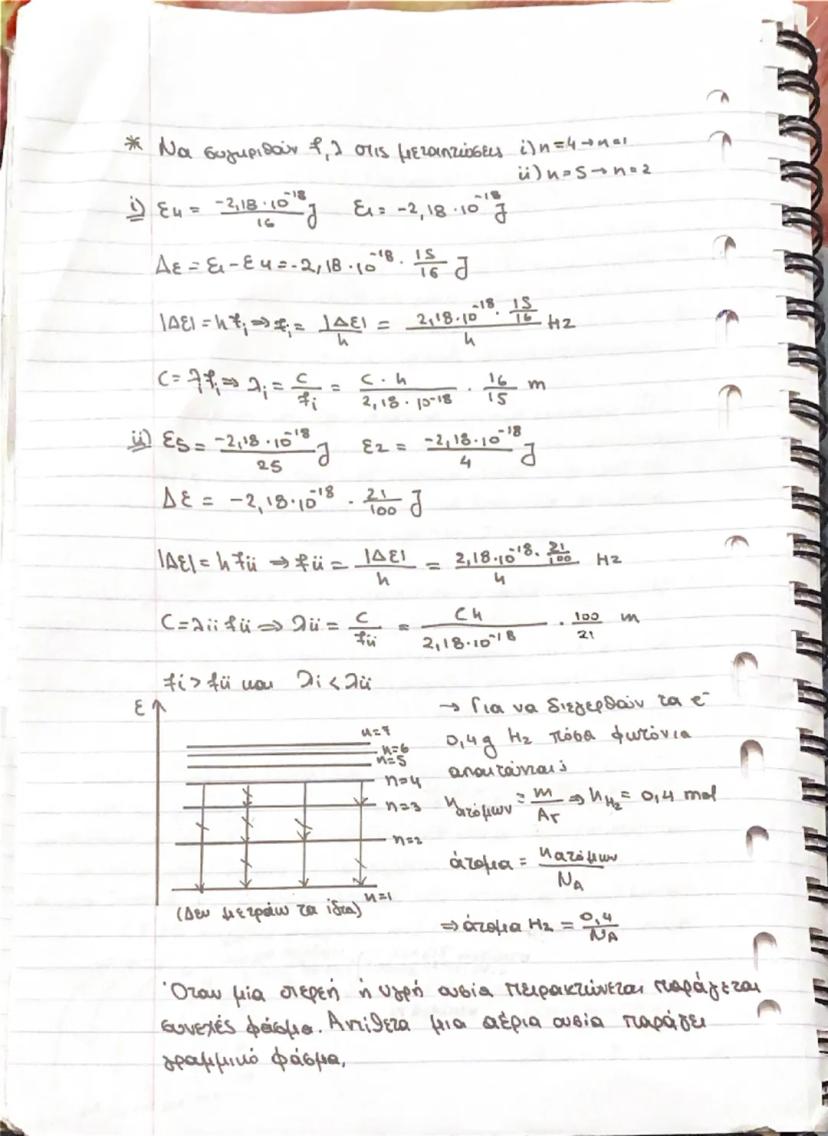 * Να συγκριθούν f, λ στις μεταπτώσεις i) n=4→n=1
ii) n=5→n=2
i) ε4 = -2,18·10^-18/16 J ε1 = -2,18·10^-18 J
Δε = ε1 - ε4 = -2,18·10^-18 · 15/16 J
|Δε| = h fi ⇒ fi = |Δε|/h = 2,18·10^-18 · 15/16 / h Hz
C = λfi ⇒ λi = c/fi = C·h/2,18·10^-18 · 16/15 m
ii) ε5 = -2,18·10^-18/25 J ε2 = -2,18·10^-18/4 J
Δε = -2,18·10^-18 · 21/100 J
|Δε| = h fii ⇒ fii = |Δε|/h = 2,18·10^-18 · 21/100 / h Hz
C = λii fii ⇒ λii = C/fii = Ch/2,18·10^-18 · 100/21 m
fi > fii και λi < λii
ε
n=7
n=6
n=5
n=4
n=3
n=2
n=1
(Δεν μετράω τα ίδια)
→ Για να διεγερθούν τα e-
0,4g H2 πόσα φωτόνια
απαιτούνται;
nατόμων = m/Ar ⇒ nH2 = 0,4 mol
άτομα = nατόμων/NA
⇒ άτομα H2 = 0,4/NA
Όταν μία στερεή ή υγρή ουσία πυρακτώνεται παράγεται
συνεχές φάσμα. Αντίθετα μια αέρια ουσία παράγει
γραμμικό φάσμα.